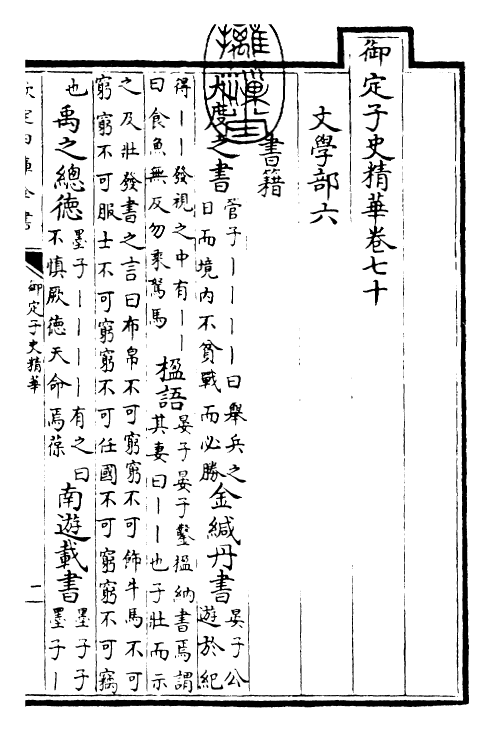 御定子史精華卷七十
文學部六
書籍
大度之書 管子｜｜｜｜曰舉兵之
日而境内不貧戰而必勝
金縅丹書 晏子公
遊於紀
得｜｜發視之中有｜｜
曰食魚無反勿乘駑馬
楹語 晏子晏子鑿楹納書焉謂
其妻曰｜｜也子壯而示
之及壯發書之言曰布帛不可窮窮不可飾牛馬不可
窮窮不可服士不可窮窮不可任國不可窮窮不可竊
也
禹之總德 墨子｜｜｜｜有之曰
不慎厥德天命焉葆
南遊載書 墨子子
墨子｜
欽定四庫全書
御定子史精華